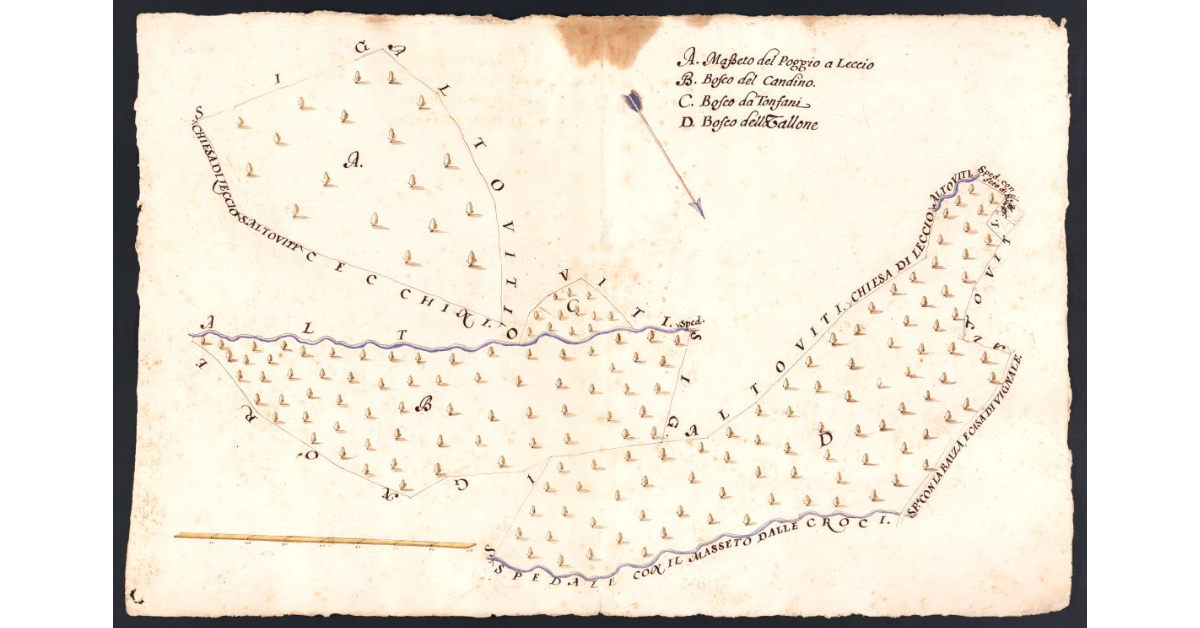 A. Maßeto del Poggio a Leccio
B. Bosco del Candino.
C. Bosco da Tonfani
D. Bosco dell Tallone
SIG ALTOVITI
S. CHIESA DI LECCIO S. ALTOVITI CECCHINI.
A.
ALTOVITI. Sped.
C
B
SIG.
D
ALTOVITI. CHIESA DI LECCIO ALTOVITI.
Sped. con
ALTOVITI
SPE. CON LA BAUZA, E CASA DI VIGNALE
SPEDALE CON IL MASSETO DALLE CROCI.